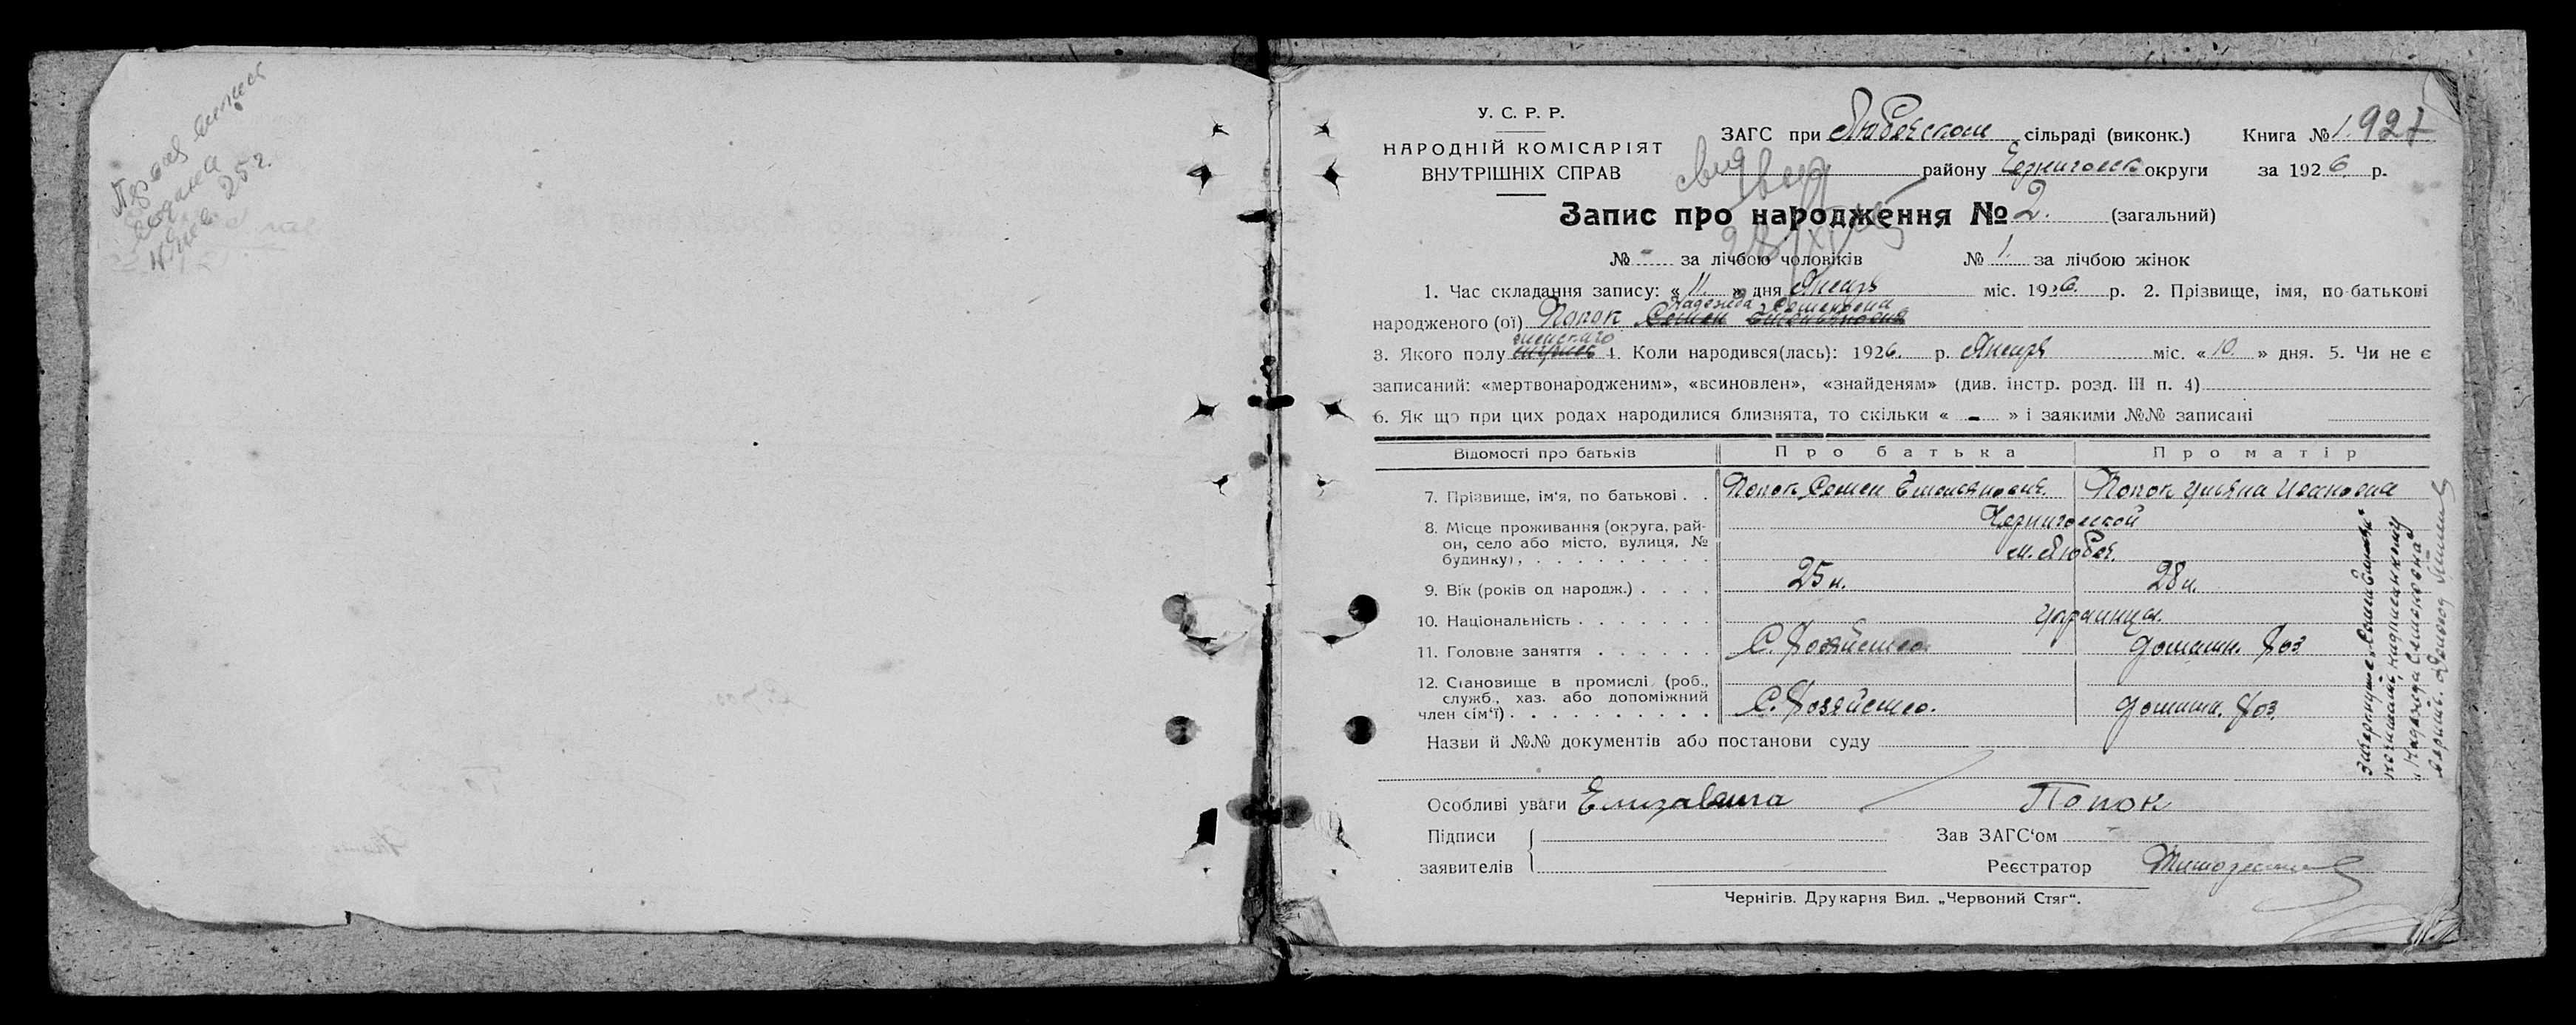 25 г.
У. С. Р. Р.
НАРОДНІЙ КОМІСАРІЯТ
ВНУТРІШНІХ СПРАВ
ЗАГС при Любечском сільраді (виконк.) Книга № 1. 927
району Черниговск округи за 1926. р.
Запис про народження № 2. (загальний)
№ - за лічбою чоловіків № 1. за лічбою жінок
1. Час складання запису: « 11. » дня Январь міс. 1926. р. 2. Прізвище, імя, по-батькові
Надежда Семеновна
народженого (ої) Попок Семен Емельяновна
женскаго
3. Якого полу 4. Коли народився(лась): 1926. р. Январь міс. « 10. » дня. 5. Чи не є
записаний: «мертвонародженим», «всиновлен», «знайденям» (див. інстр. розд. III п. 4)
6. Як що при цих родах народилися близнята, то скільки « - » і заякими №№ записані
Відомості про батьків Про батька Про матір
7. Прізвище, ім'я, по батькові . . Попок Семен Емельянович. Попок Ульяна Ивановна
8. Місце проживання (округа, рай- Черниговской
он, село або місто, вулиця, № м. Любеч.
будинку), . . . . . . . . . .
9. Вік (років од народж.) . . . . 25 л. 28 л.
10. Національність . . . . . . . Украинцы.
11. Головне заняття . . . . . . С. Хозяйство. Домашн. Хоз
12. Становище в промислі (роб.,
служб., хаз. або допоміжний
член сім'ї) . . . . . . . . . . С. Хозяйство. Домашн. Хоз.
Назви й №№ документів або постанови суду
Особливі уваги Елизавета Попок
Підписи
заявителів
Зав ЗАГС'ом -
Реєстратор
Чернігів. Друкарня Вид. „Червоний Стяг“.
не читать, надписанному
„Надежда Семеновна“